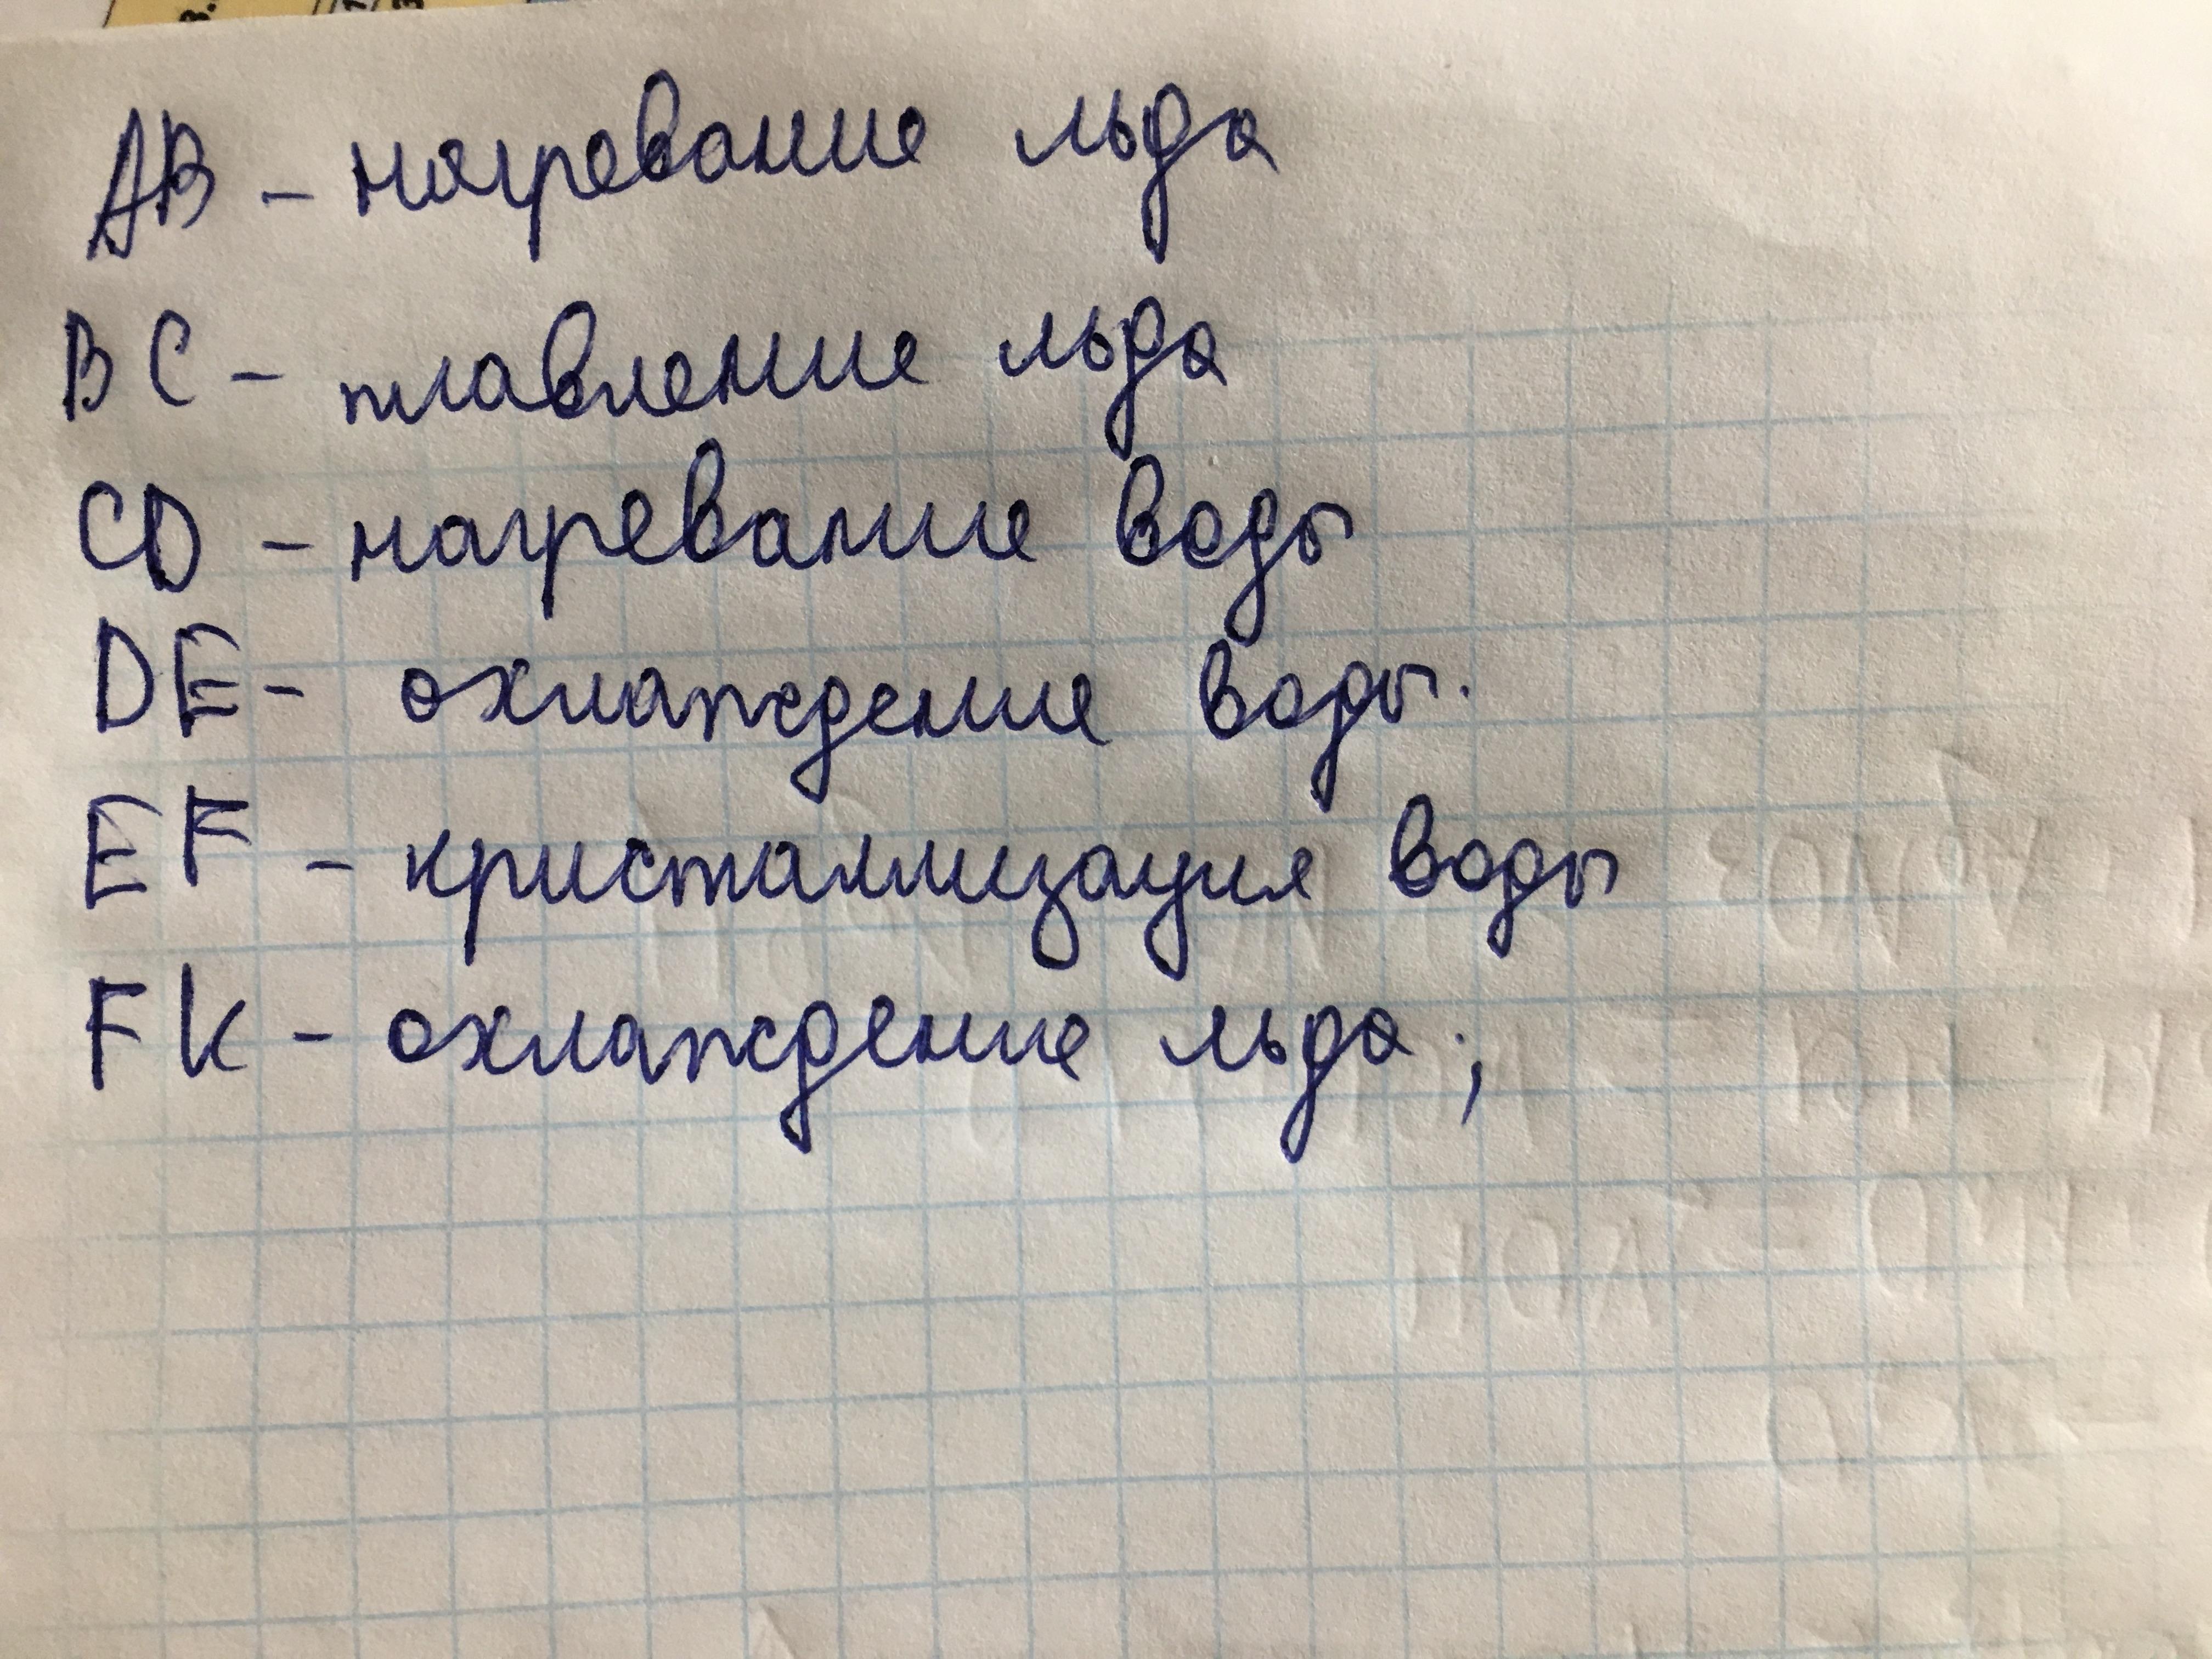 AB - нагревание льда
BC - плавление льда
CD - нагревание воды
DE - охлаждение воды.
EF - кристаллизация воды
FK - охлаждение льда;